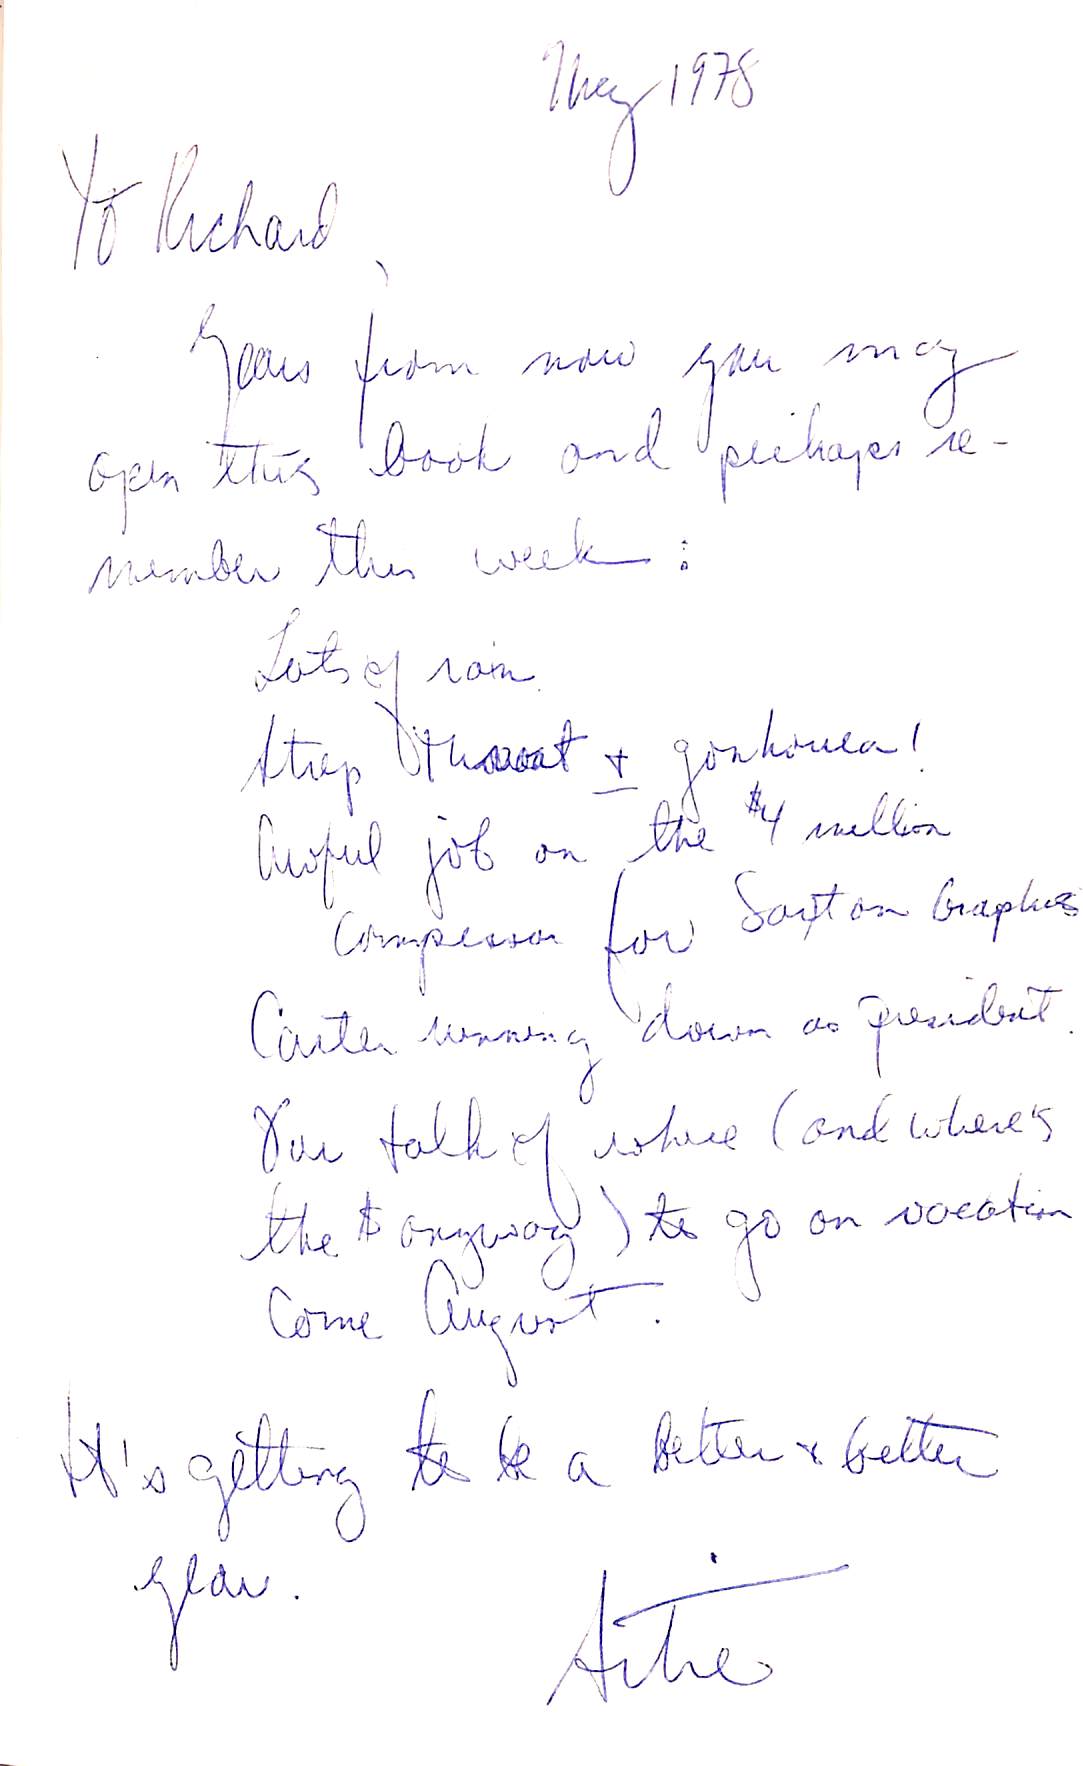 May 1978
Yo Richard,
Years from now you may
open this book and perhaps re-
member this week:
Lots of rain.
Strep throat + gonhorrea!
Awful job on the $4 million
for Saxton Graphics
Carter running down as president.
Our talk of where (and where's
the $ anyway) to go on vacation
come August.
It's getting to be a better & better
year.
Artie